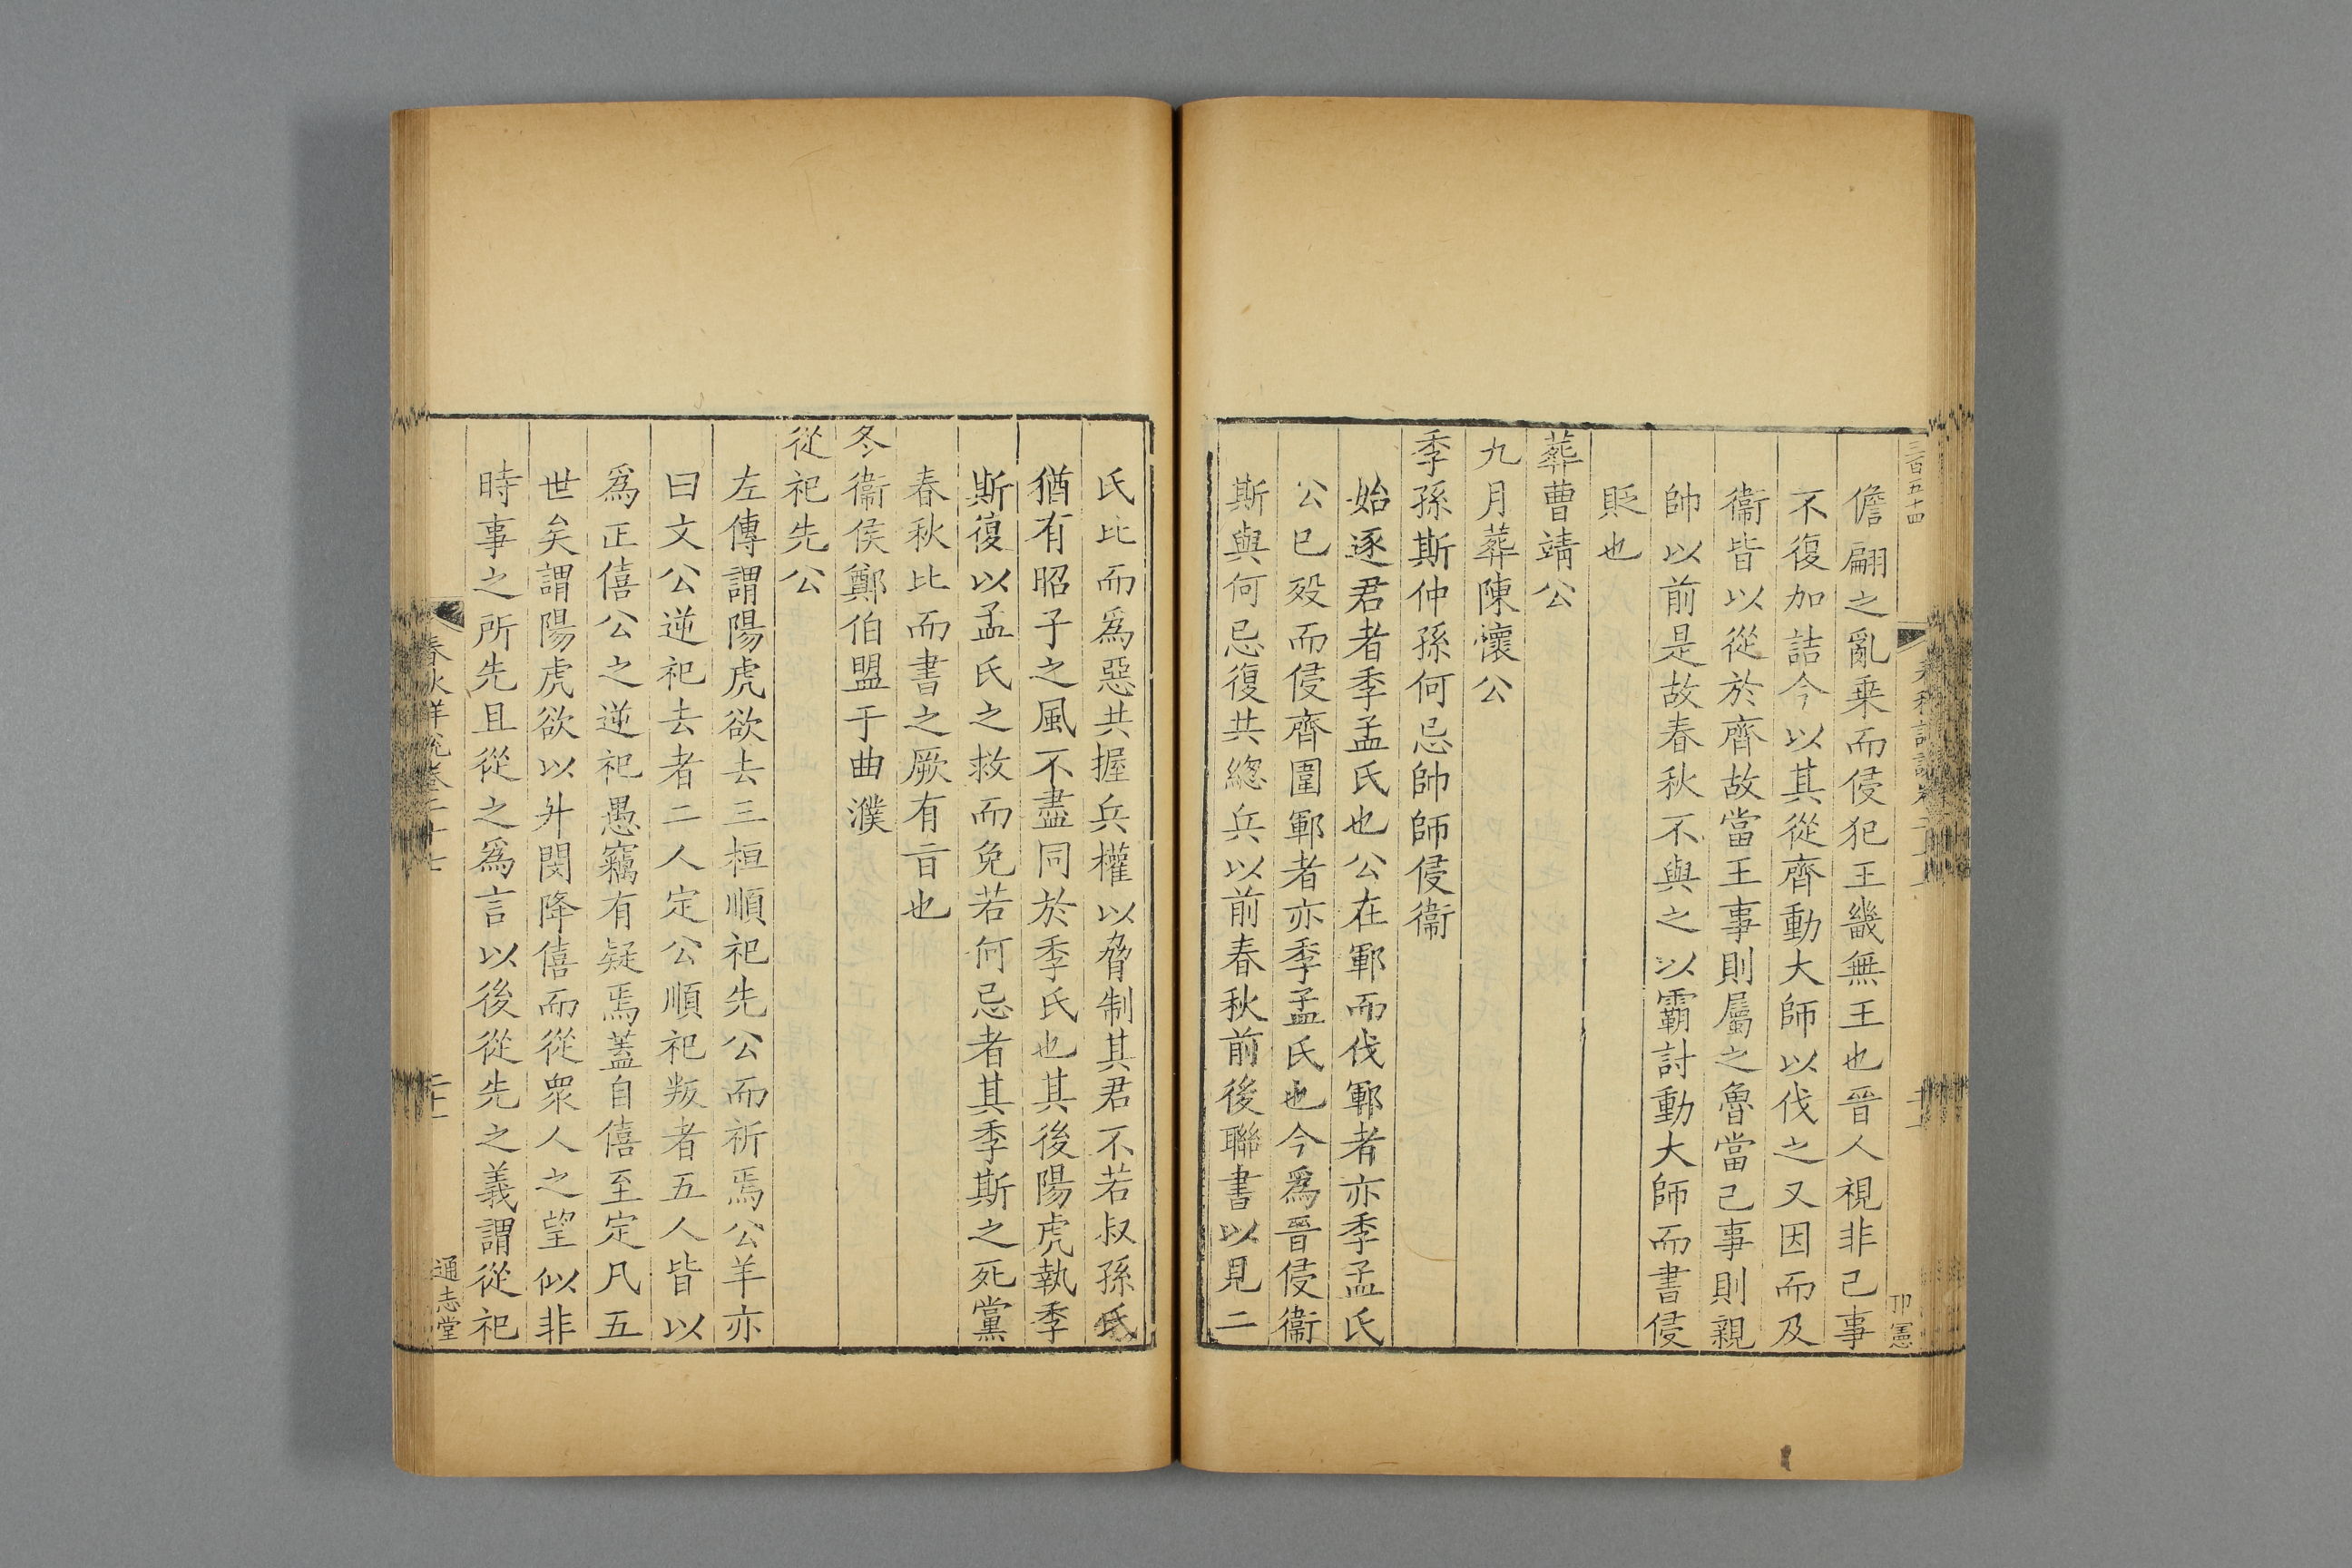 三百五十四
儋翩之亂乗而侵犯王畿無王也晉人視非己事
不復加詰今以其從齊動大師以伐之又因而及
衞皆以從於齊故當王事則屬之魯當己事則親
帥以前是故春秋不與之以霸討動大師而書侵
貶也
葬曹靖公
九月葬陳懷公
季孫斯仲孫何忌帥師侵衞
始逐君者季孟氏也公在鄆而伐鄆者亦季孟氏
公巳殁而侵齊圍鄆者亦季孟氏也今爲晉侵衞
斯與何忌復共緫兵以前春秋前後聯書以見二
氏比而爲惡共握兵權以脅制其君不若叔孫氏
猶有昭子之風不盡同於季氏也其後陽虎執季
斯復以孟氏之救而免若何忌者其季斯之死黨
春秋比而書之厥有㫖也
冬衞侯鄭伯盟于曲濮
從祀先公
左傳謂陽虎欲去三桓順祀先公而祈焉公羊亦
曰文公逆祀去者二人定公順祀叛者五人皆以
爲正僖公之逆祀愚竊有疑焉蓋自僖至定凡五
世矣謂陽虎欲以升閔降僖而從衆人之望似非
時事之所先且從之爲言以後從先之義謂從祀
春秋詳説卷二十七
通志堂